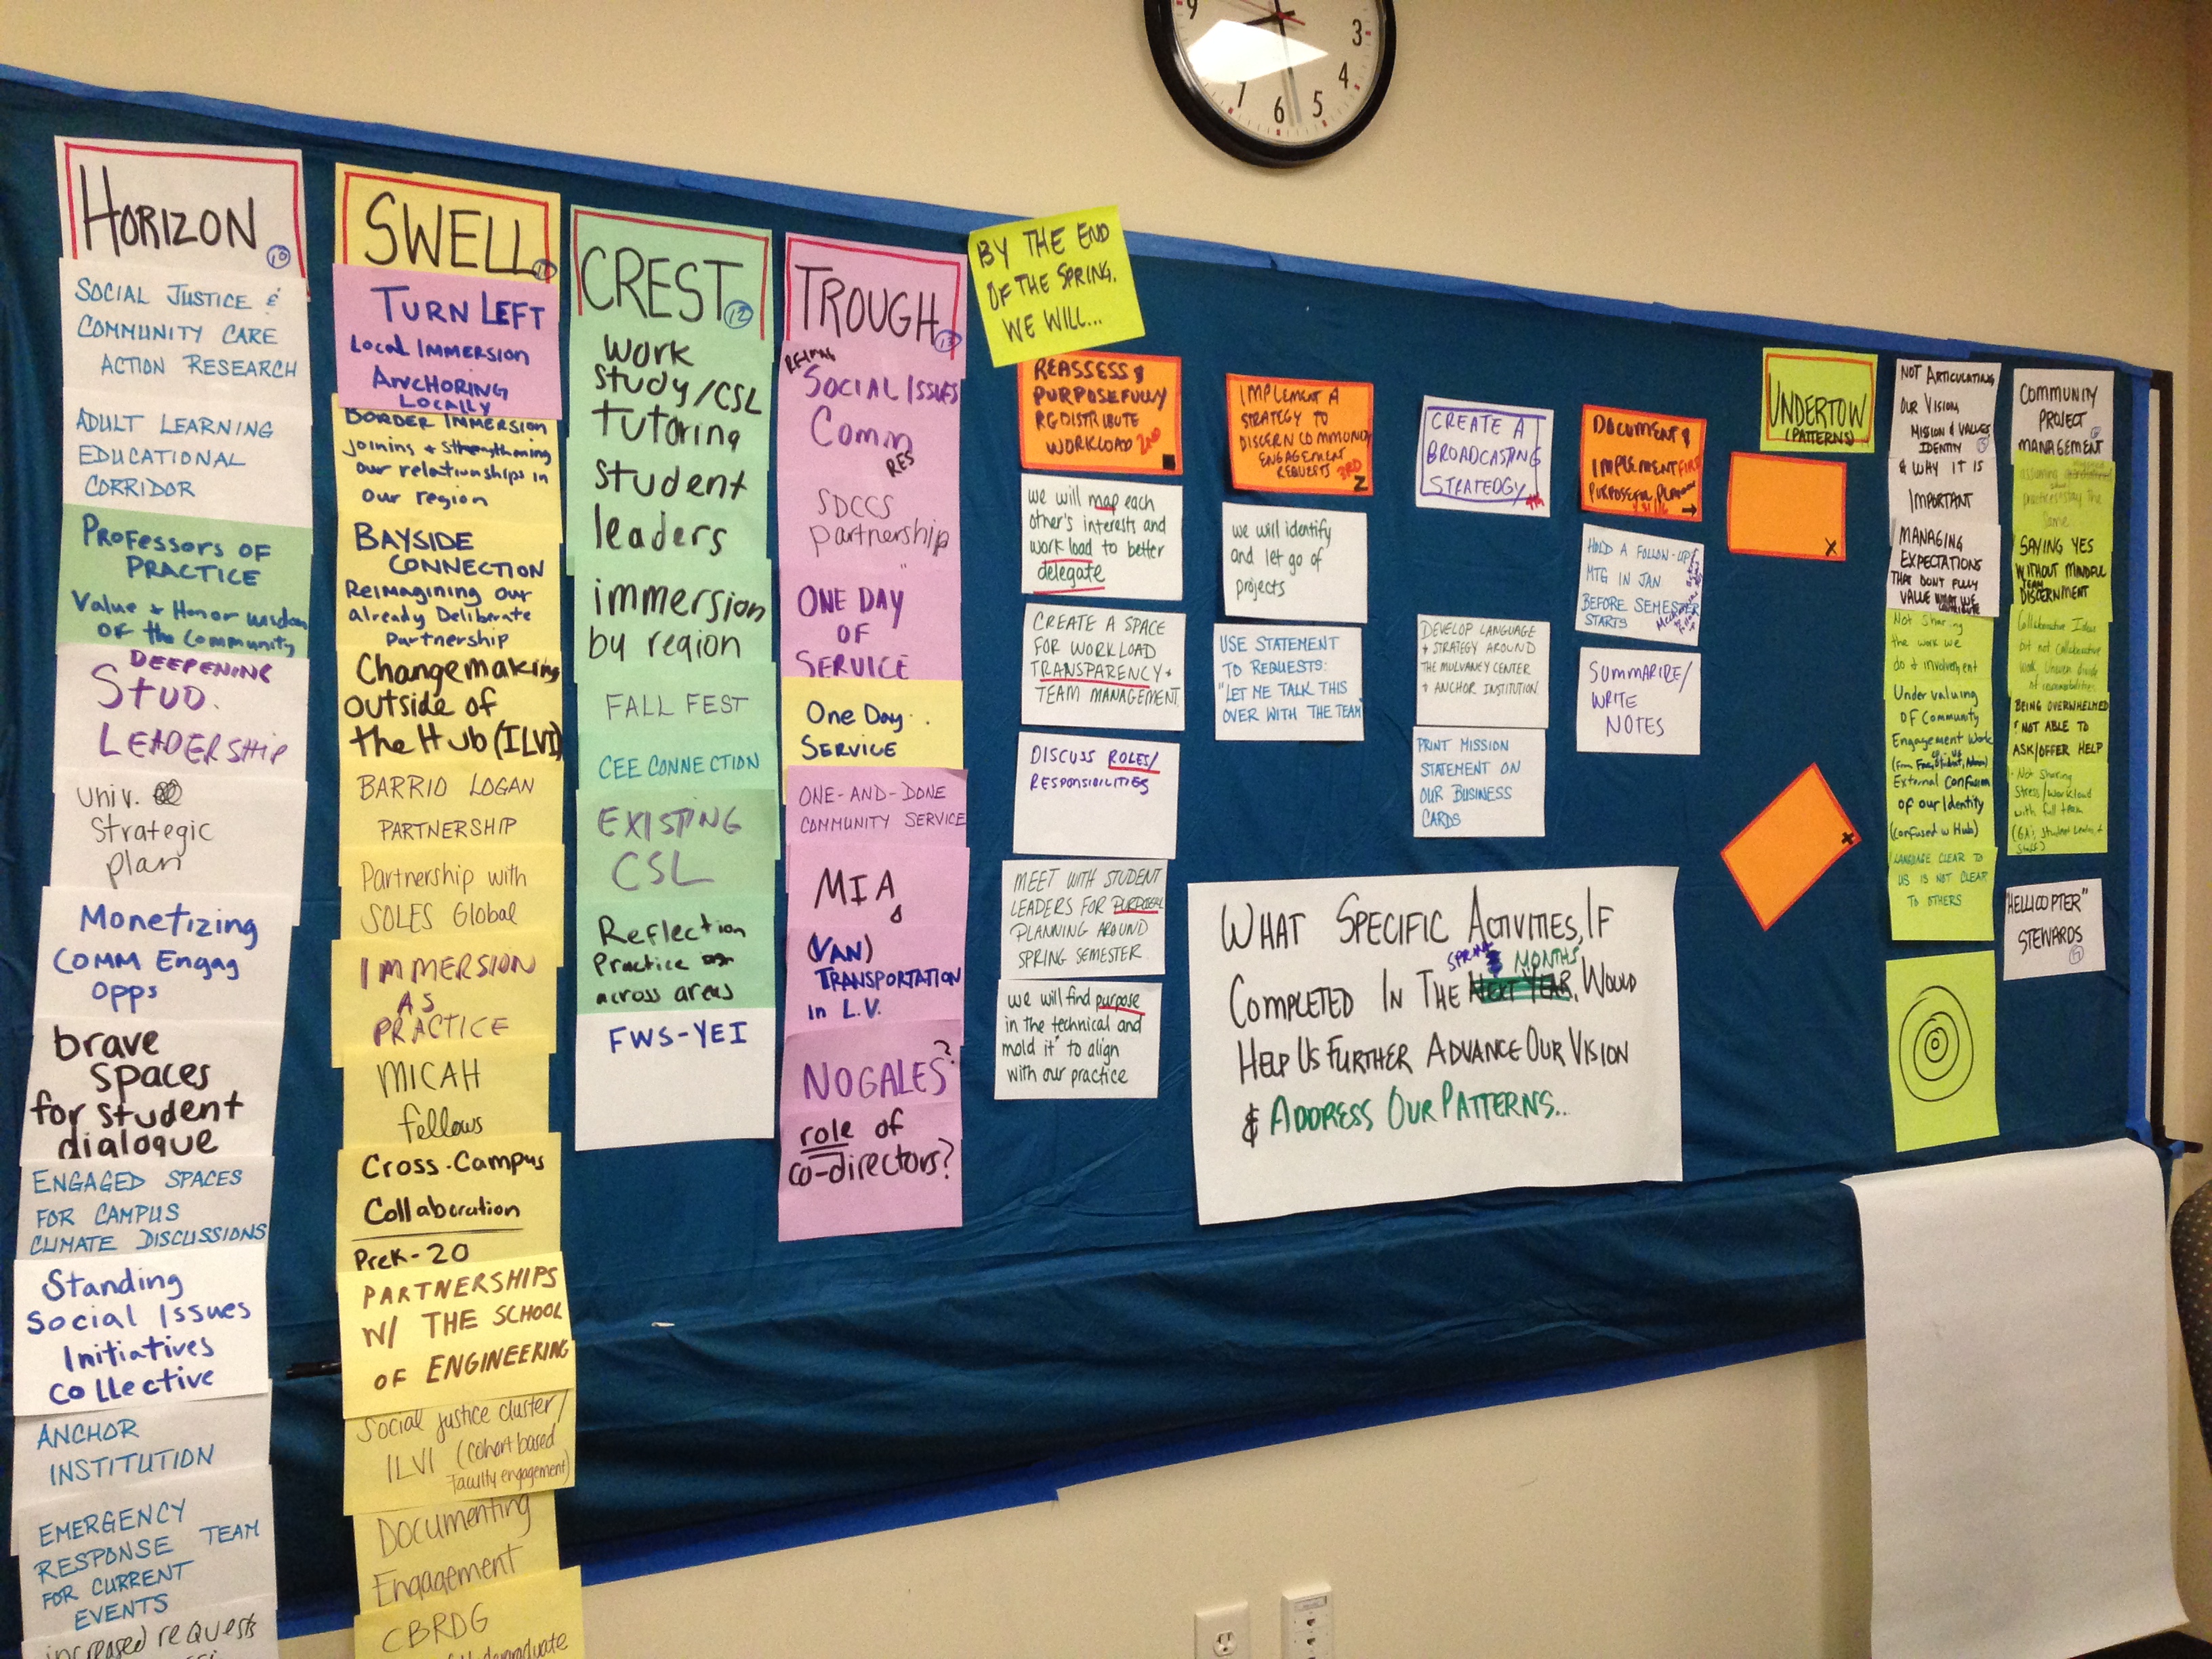 9
3
4
5
6
7
HORIZON
10
SOCIAL JUSTICE &
COMMUNITY CARE
ACTION RESEARCH
ADULT LEARNING
EDUCATIONAL
CORRIDOR
PROFESSORS OF
PRACTICE
Value & Honor wisdom
of the Community
DEEPENING
STUD.
LEADERSHIP
Univ.
Strategic
plan
Monetizing
COMM Engag
opps
brave
spaces
for student
dialogue
ENGAGED SPACES
FOR CAMPUS
CLIMATE DISCUSSIONS
Standing
Social Issues
Initiatives
Collective
ANCHOR
INSTITUTION
EMERGENCY
RESPONSE TEAM
FOR CURRENT
EVENTS
increased requests
SWELL
11
TURN LEFT
Local Immersion
ANCHORING
LOCALLY
BORDER IMMERSION
Joining & Strengthening
our relationships in
our region
BAYSIDE
CONNECTION
Reimagining our
already Deliberate
Partnership
Changemaking
outside of
the Hub (ILVI)
BARRIO LOGAN
PARTNERSHIP
Partnership with
SOLES Global
IMMERSION
AS
PRACTICE
MICAH
fellows
Cross-Campus
Collaboration
PreK-20
PARTNERSHIPS
W/ THE SCHOOL
OF ENGINEERING
Social justice cluster/
ILVI (cohort based
Faculty engagement)
Documenting
Engagement
CBRDG
CREST
12
Work
Study/CSL
tutoring
student
leaders
immersion
by region
FALL FEST
CEE CONNECTION
EXISTING
CSL
Reflection
Practice
across areas
FWS-YEI
TROUGH
13
SOCIAL ISSUES
Comm
RES
SDCCS
partnership
ONE DAY
OF
SERVICE
One Day
SERVICE
ONE-AND-DONE
COMMUNITY SERVICE
MIA
(VAN)
TRANSPORTATION
in L.V.
NOGALES?
role of
co-directors?
BY THE END
OF THE SPRING,
WE WILL...
REASSESS &
PURPOSEFULLY
REDISTRIBUTE
WORKLOAD 2ND
we will map each
other's interests and
work load to better
delegate
CREATE A SPACE
FOR WORKLOAD
TRANSPARENCY +
TEAM MANAGEMENT
DISCUSS ROLES/
RESPONSIBILITIES
MEET WITH STUDENT
LEADERS FOR PURPOSEFUL
PLANNING AROUND
SPRING SEMESTER.
we will find purpose
in the technical and
"mold it" to align
with our practice
IMPLEMENT A
STRATEGY TO
DISCERN COMMUNITY
ENGAGEMENT
REQUESTS 3RD
Z
we will identify
and let go of
projects
USE STATEMENT
TO REQUESTS:
"LET ME TALK THIS
OVER WITH THE TEAM"
CREATE A
BROADCASTING
STRATEDGY 4th
DEVELOP LANGUAGE
+ STRATEGY AROUND
THE MULVANEY CENTER
+ ANCHOR INSTITUTION
PRINT MISSION
STATEMENT ON
OUR BUSINESS
CARDS
DOCUMENT &
IMPLEMENT FIRST
PURPOSEFUL PLANNING
HOLD A FOLLOW-UP
MTG IN JAN
BEFORE SEMESTER
STARTS
SUMMARIZE/
WRITE
NOTES
WHAT SPECIFIC ACTIVITIES, IF
SPRING MONTHS
COMPLETED IN THE NEXT YEAR, WOULD
HELP US FURTHER ADVANCE OUR VISION
& ADDRESS OUR PATTERNS..
UNDERTOW
(PATTERNS)
X
NOT ARTICULATING
OUR VISION
MISSION & VALUES
IDENTITY
& WHY IT IS
IMPORTANT
MANAGING
EXPECTATIONS
THAT DON'T FULLY
VALUE WHAT WE
CONTRIBUTE
Not Sharing
the work we
do & involvement
Under valuing
of Community
Engagement Work
External Confusion
of our Identity
(confused w Hub)
LANGUAGE CLEAR TO
US IS NOT CLEAR
TO OTHERS
COMMUNITY
PROJECT
MANAGEMENT
assuming
practices stay the
same
SAYING YES
WITHOUT MINDFUL
TEAM
DISCERNMENT
Collaborative Ideas
but not collaborative
work. Uneven divide
of responsibilities
BEING OVERWHELMED
& NOT ABLE TO
ASK/OFFER HELP
Not sharing
stress/workload
with full team
(GA's, Student Leaders &
Staff)
"HELLICOPTER"
STEWARDS